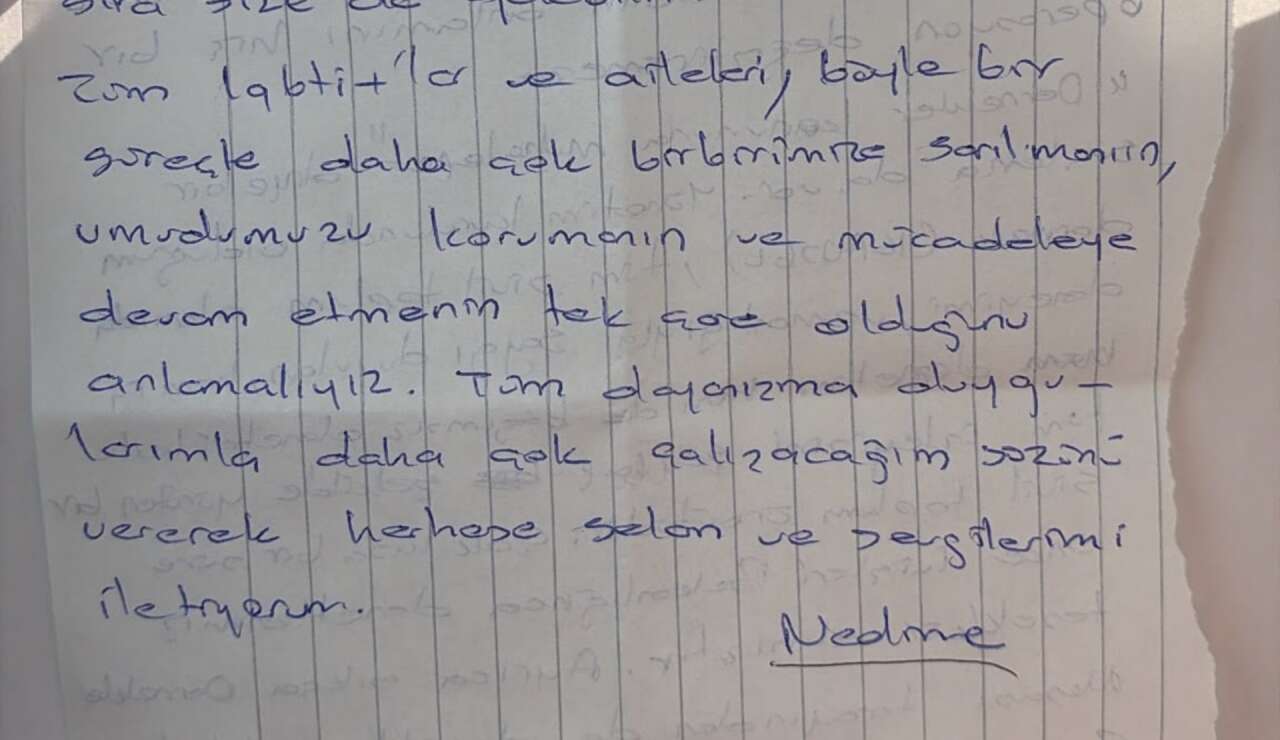 sıra size de
Tüm lgbti+'lar ve aileleri, böyle bir
süreçte daha çok birbirimize sarılmanın,
umudumuzu korumanın ve mücadeleye
devam etmenin tek çare olduğunu
anlamalıyız. Tüm dayanışma duygu-
larımla daha çok çalışacağım sözünü
vererek herkese selam ve sevgilerimi
iletiyorum.
Nedime